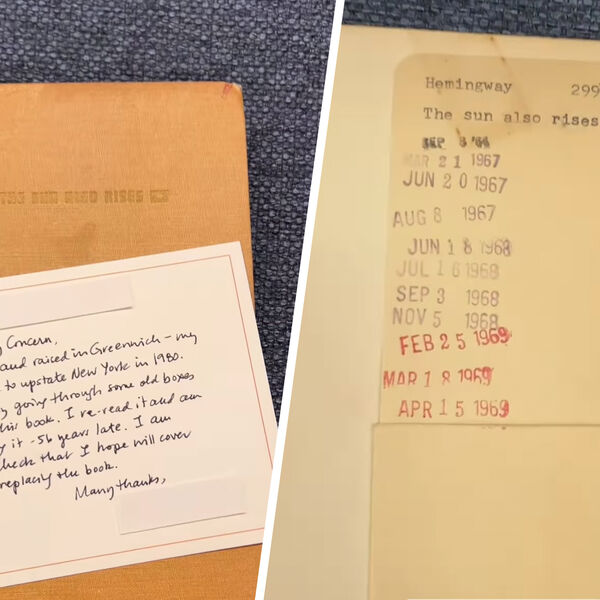 THE SUN ALSO RISES
Concern,
and raised in Greenwich - my
to upstate New York in 1980.
going through some old boxes
this book. I re-read it and am
it - 56 years late. I am
check that I hope will cover
replacing the book.
Many thanks,
Hemingway 299
The sun also rises
SEP
MAR 21 1967
JUN 20 1967
AUG 8 1967
JUN 18 1968
JUL 16 1968
SEP 3 1968
NOV 5 1968
FEB 25 1969
MAR 18 1969
APR 15 1969